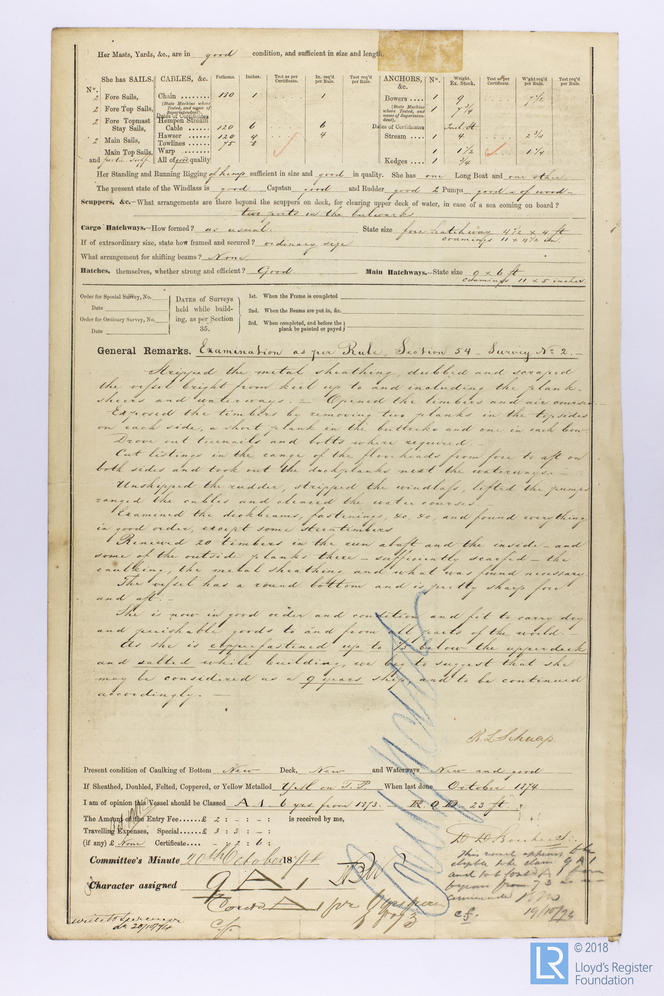 Her Masts, Yards, &c., are in good condition, and sufficient in size and length.
She has SAILS. CABLES, &c. Fathoms. Inches. Test as per Certificate. In. req'd per Rule. Test req'd per Rule. ANCHORS, &c. No. Weight. Ex. Stock. Test as per Certificate. W'ght req'd per Rule. Test req'd per Rule.
No.
2 Fore Sails, Chain 1 1 Bowers 1 9 7 1/2
(State Machine where Tested, and name of Superintendent). (State Machine where Tested, and name of Superintendent).
2 Fore Top Sails, 1 7 3/4
Dates of Certificates
2 Fore Topmast Stay Sails, Hempen Stream Cable 120 6 6 Dates of Certificates
Hawser 120 4 4 Stream 1 4 2 3/4
2 Main Sails, Towlines 75
Main Top Sails, Warp 1 1 1/2 1 1/4
and All of good quality Kedges 1 3/4
Her Standing and Running Rigging of hemp sufficient in size and good in quality. She has one Long Boat and one other
The present state of the Windlass is good Capstan good and Rudder good 2 Pumps good & of wood
Scuppers, &c.—What arrangements are there beyond the scuppers on deck, for clearing upper deck of water, in case of a sea coming on board?
two ports in the bulwarks
Cargo Hatchways.—How formed? as usual. State size fore hatchway 4 1/2 x 4 ft
coamings 11 x 4 1/2 in
If of extraordinary size, state how framed and secured? ordinary size
What arrangement for shifting beams? None
Hatches, themselves, whether strong and efficient? Good Main Hatchways.—State size 9 x 6 ft
coamings 11 x 5 inches
Order for Special Survey, No.
Date
Order for Ordinary Survey, No.
Date
DATES of Surveys held while building, as per Section 35.
1st. When the Frame is completed
2nd. When the Beams are put in, &c.
3rd. When completed, and before the plank be painted or payed
General Remarks. Examination as per Rule, Section 54 - Survey No 2. -
Stripped the metal sheathing, dubbed and scraped
the vessel bright from keel up to and including the plank-
sheers and waterways. — Opened the timbers and air courses
Exposed the timbers by removing two planks in the topsides
on each side, a short plank in the buttocks and one in each bow
Drove out treenails and bolts where required. -
Cut listings in the range of the floorheads from fore to aft on
both sides and took out the deckplanks next the waterways. -
Unshipped the rudder, stripped the windlass, lifted the pumps
ranged the cables and cleared the water courses.
Examined the deckbeams, fastenings, &c, &c, and found everything
in good order, except some sterntimbers.
Renewed 20 timbers in the run abaft and the inside - and
some of the outside planks there - sufficiently scarfed - the
caulking, the metal sheathing and what was found necessary
The vessel has a round bottom and is pretty sharp fore
and aft. -
She is now in good order and condition and fit to carry dry
and perishable goods to and from all parts of the world.
As she is copperfastened up to below the upperdeck
and salted while building, we beg to suggest that she
may be considered as a 9 years ship, and to be continued
accordingly. -
Present condition of Caulking of Bottom New Deck, New and Waterways New and good
If Sheathed, Doubled, Felted, Coppered, or Yellow Metalled When last done October 1874
I am of opinion this Vessel should be Classed A1 - 6 yrs from 1873. 23 ft
The Amount of the Entry Fee £ 2 : - : - is received by me,
Travelling Expenses, Special £ 3 : 3 : - :
(if any) £ None Certificate - : 2 : 6 :
Committee's Minute 20th October 1874
Character assigned 9 A 1
This vessel appears to be
eligible to be class 9 A 1
19/10/74
© 2018
LR Lloyd's Register
Foundation